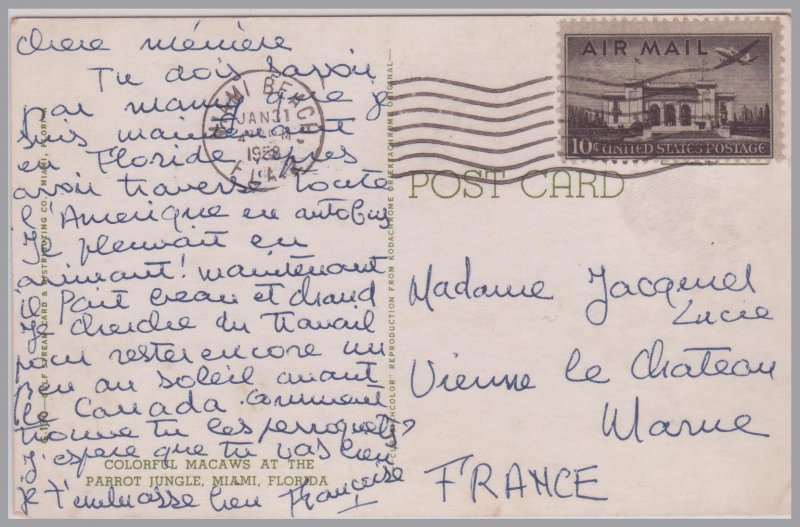 chere mémère
Tu dois savoir
par mamie que je
suis maintenant
en Floride, après
avoir traversé toute
l'Amerique en autobus
Il pleuvait en
arrivant! maintenant
il fait beau et chaud
Je cherche du travail
pour rester encore un
peu au soleil avant
le Canada. comment
trouve tu les perroquets?
J'espere que tu vas bien
je t'embrasse bien Françoise
COLORFUL MACAWS AT THE
PARROT JUNGLE, MIAMI, FLORIDA
GULF STREAM CARD & DISTRIBUTING CO., MIAMI, FLORIDA
REPRODUCTION FROM KODACHROME OR EKTACHROME ORIGINAL
MIAMI BEACH
JAN 31
AIR MAIL
10¢ UNITED STATES POSTAGE
POST CARD
Madame Jacquinet
Lucie
Vienne le Chateau
Marne
FRANCE